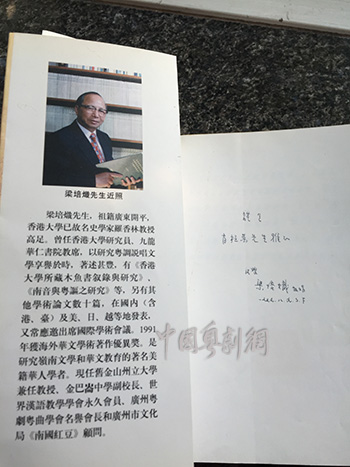 梁培熾先生近照
梁培熾先生，祖籍廣東開平，
香港大學已故名史學家羅香林教授
高足。曾任香港大學研究員、九龍
華仁書院教席，以研究粵調說唱文
學享譽於時，著述甚豐，有《香港
大學所藏木魚書叙錄與研究》、
《南音與粵謳之研究》等，另有其
他學術論文數十篇，在國內（含
港、臺）及美、日、越等地發表，
又常應邀出席國際學術會議。1991
年獲海外華文學術著作優異獎。是
研究嶺南文學和華文教育的著名美
籍華人學者。現任舊金山州立大學
兼任教授、金巴崙中學副校長、世
界漢語教學學會永久會員、廣州粵
劇粵曲學會名譽會長和廣州市文化
局《南國紅豆》顧問。
梁培熾
中国粤剧網